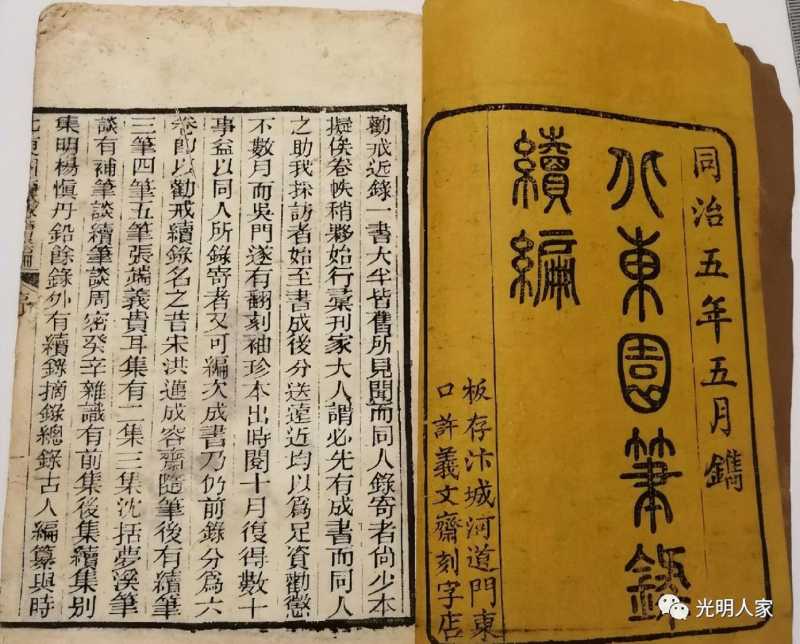 同治五年五月鐫
北東園筆錄
續編
板存汴城河道門東
口許義文齋刻字店
勸戒近錄一書大半皆舊所見聞而同人錄寄者尚少本
擬俟卷帙稍夥始行彙刊家大人謂必先有成書而同人
之助我採訪者始至書成後分送遠近均以爲足資勸懲
不數月而吳門遂有翻刻袖珍本出時閱十月復得數十
事益以同人所錄寄者又可編次成書乃仍前錄分爲六
卷即以勸戒續錄名之昔宋洪邁成容齋隨筆後有續筆
三筆四筆五筆張端義貴耳集有二集三集沈括夢溪筆
談有補筆談續筆談周密癸辛雜識有前集後集續集別
集明楊慎丹鉛餘錄外有續錄摘錄總錄古人編纂與時
光明人家